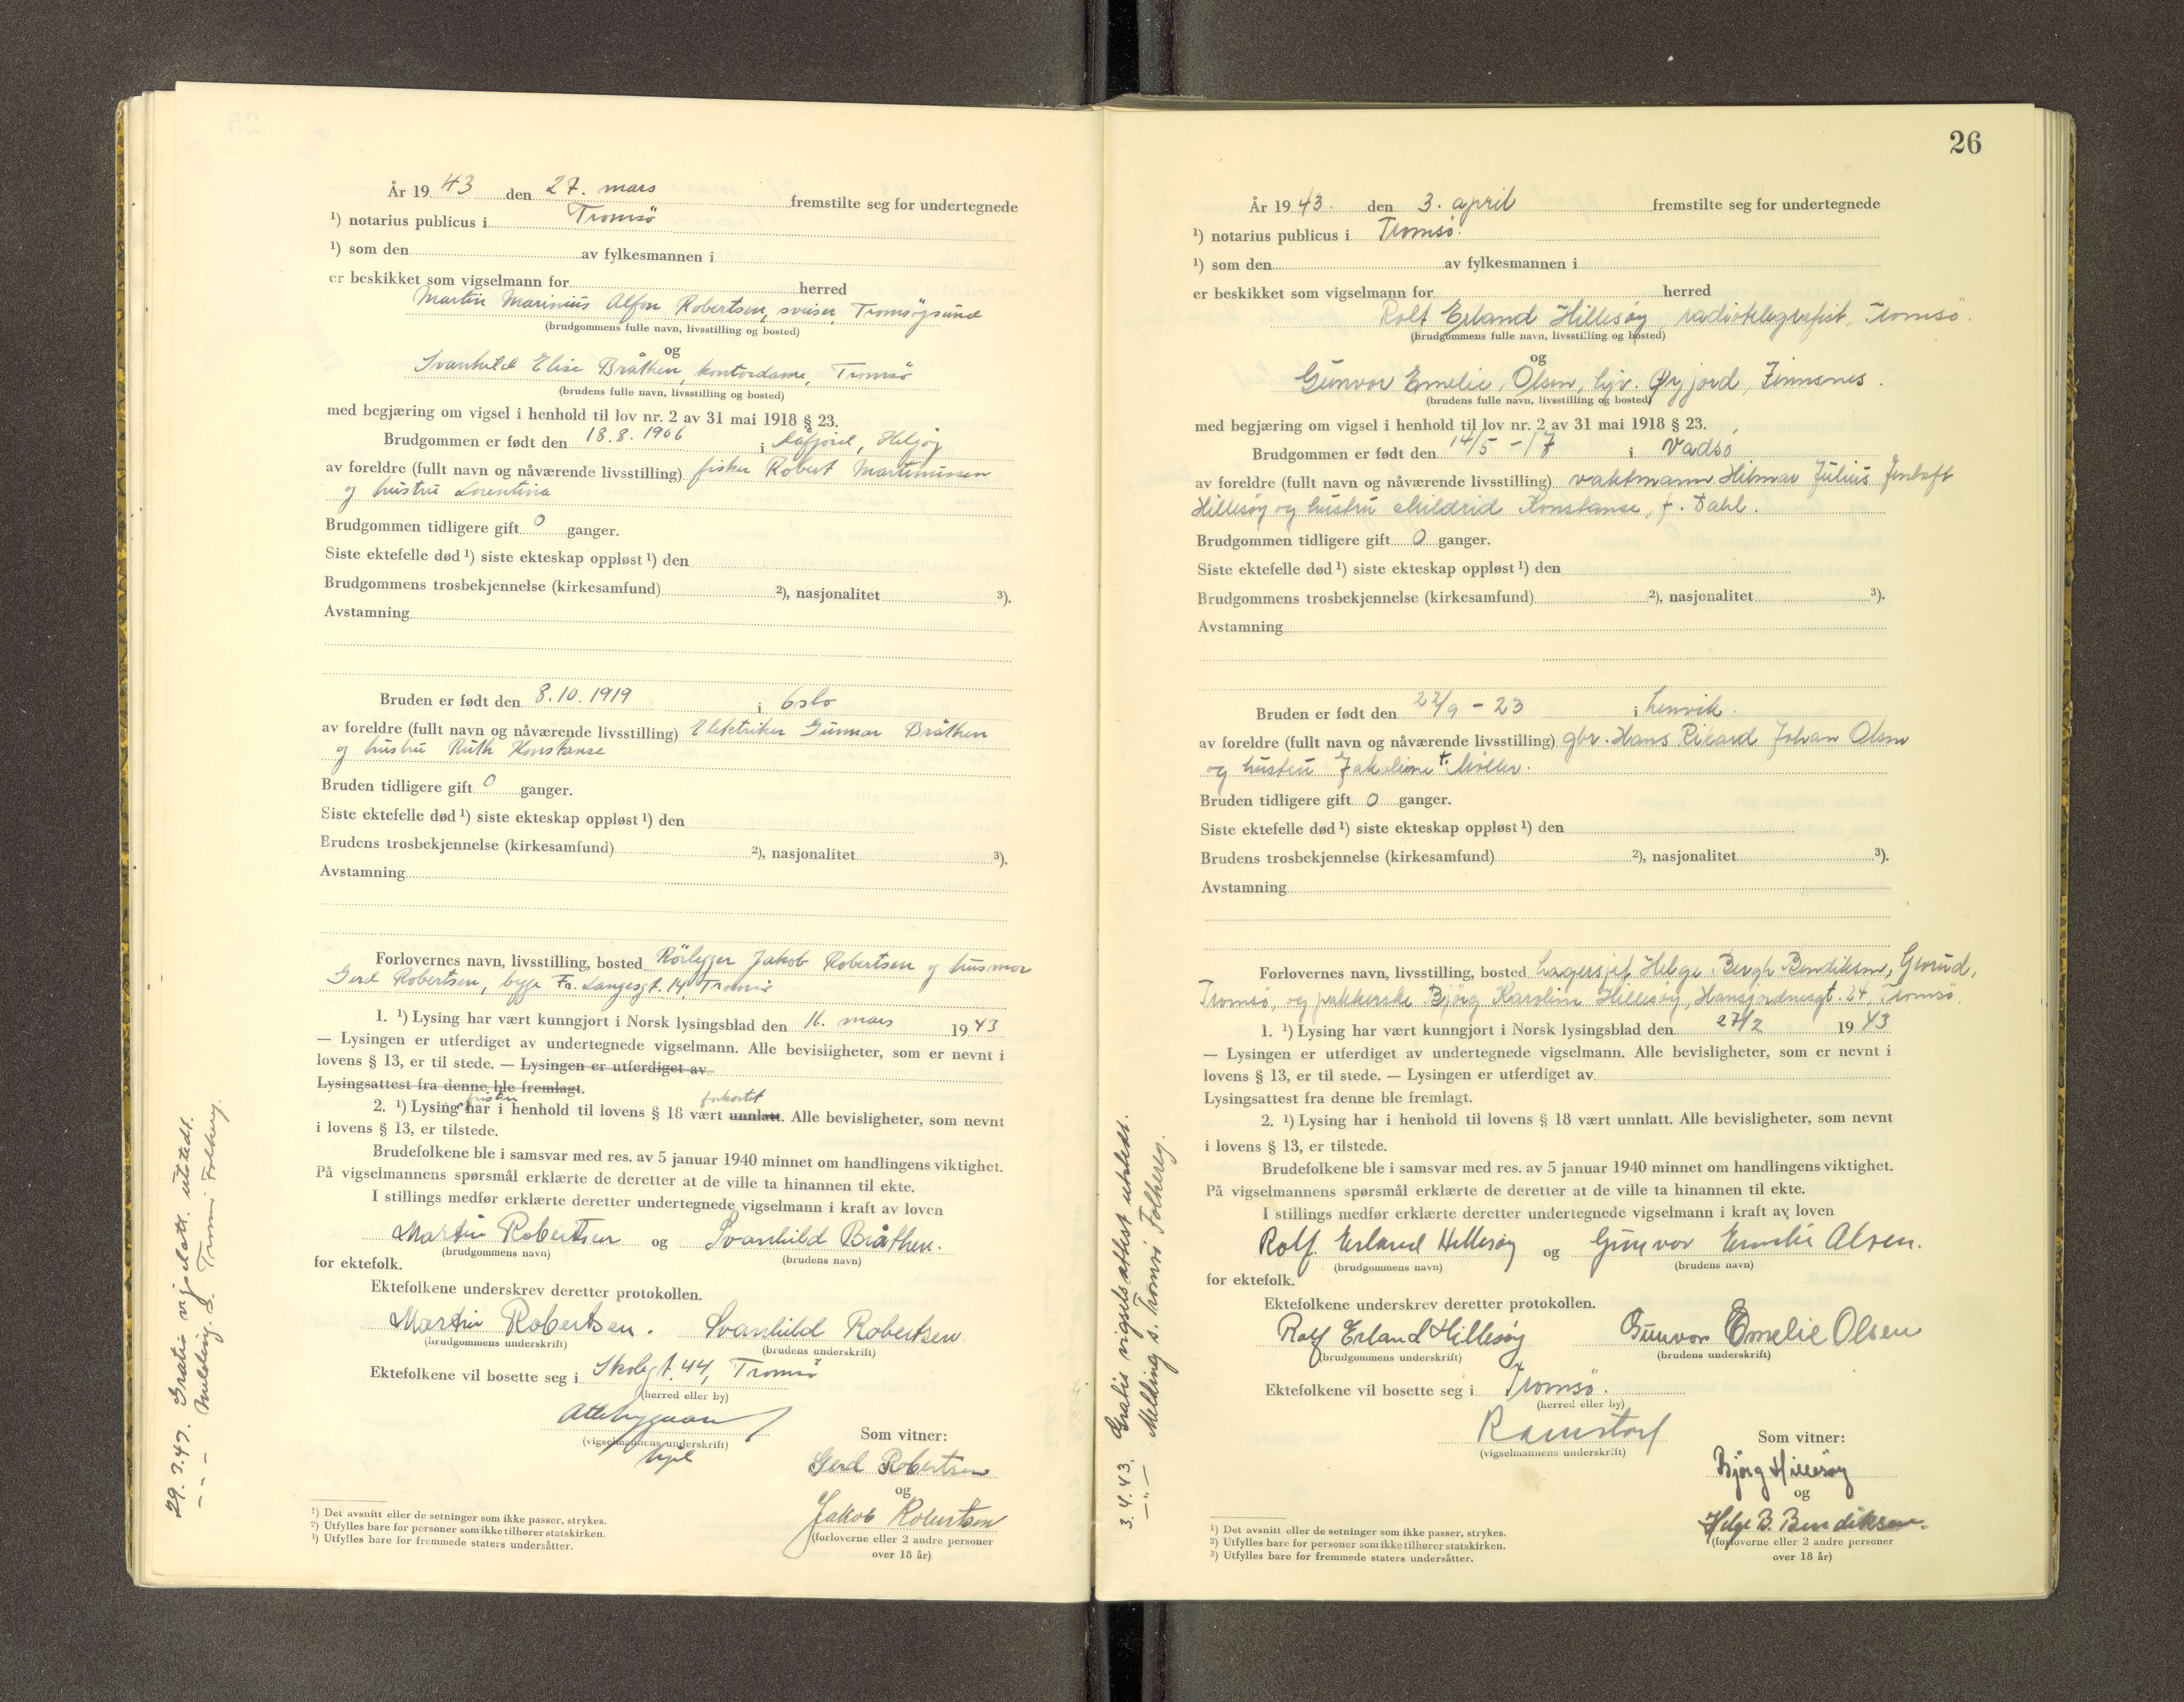 År 1943 den 27. mars fremstilte seg for undertegnede
¹) notarius publicus i Tromsö
¹) som den av fylkesmannen i
er beskikket som vigselmann for herred
Martin Marinius Alfon Robertsen, sveiser, Tromsöysund
(brudgommens fulle navn, livsstilling og bosted)
og
Svanhild Elise Bråthen, kontordame, Tromsö
(brudens fulle navn, livsstilling og bosted)
med begjæring om vigsel i henhold til lov nr. 2 av 31 mai 1918 § 23.
Brudgommen er født den 18.8.1906 i Helgöy
av foreldre (fullt navn og nåværende livsstilling) fisker Robert Martinussen
og hustru Lorentina
Brudgommen tidligere gift 0 ganger.
Siste ektefelle død ¹) siste ekteskap oppløst ¹) den
Brudgommens trosbekjennelse (kirkesamfund) ²), nasjonalitet ³).
Avstamning
Bruden er født den 8.10.1919 i Oslo
av foreldre (fullt navn og nåværende livsstilling) Elektriker Gunnar Bråthen
og hustru Ruth Konstanse
Bruden tidligere gift 0 ganger.
Siste ektefelle død ¹) siste ekteskap oppløst ¹) den
Brudens trosbekjennelse (kirkesamfund) ²), nasjonalitet ³).
Avstamning
Forlovernes navn, livsstilling, bosted Rörlegger Jakob Robertsen og husmor
Gerd Robertsen, begge Fr. Langesgt. 14, Tromsö
1. ¹) Lysing har vært kunngjort i Norsk lysingsblad den 16. mars 1943
— Lysingen er utferdiget av undertegnede vigselmann. Alle bevisligheter, som er nevnt i
lovens § 13, er til stede. — Lysingen er utferdiget av
Lysingsattest fra denne ble fremlagt.
fristen forkortet
2. ¹) Lysing har i henhold til lovens § 18 vært unnlatt. Alle bevisligheter, som nevnt
i lovens § 13, er tilstede.
Brudefolkene ble i samsvar med res. av 5 januar 1940 minnet om handlingens viktighet.
På vigselmannens spørsmål erklærte de deretter at de ville ta hinannen til ekte.
I stillings medfør erklærte deretter undertegnede vigselmann i kraft av loven
Martin Robertsen og Svanhild Bråthen.
(brudgommens navn) (brudens navn)
for ektefolk.
Ektefolkene underskrev deretter protokollen.
Martin Robertsen. Svanhild Robertsen
(brudgommens underskrift) (brudens underskrift)
Ektefolkene vil bosette seg i Skolegt. 44, Tromsö
(herred eller by)
(vigselmannens underskrift)
Som vitner:
Gerd Robertsen
og
Jakob Robertsen
(forloverne eller 2 andre personer
over 18 år)
¹) Det avsnitt eller de setninger som ikke passer, strykes.
²) Utfylles bare for personer som ikke tilhører statskirken.
³) Utfylles bare for fremmede staters undersåtter.
29.3.43. Gratis vigselatt. utstedt.
— " — Melding s. Tromsö Folkereg.
26
År 1943. den 3. april fremstilte seg for undertegnede
¹) notarius publicus i Tromsö.
¹) som den av fylkesmannen i
er beskikket som vigselmann for herred
Rolf Erland Hillesöy, radiotelegrafist, Tromsö.
(brudgommens fulle navn, livsstilling og bosted)
og
Gunvor Emelie Olsen, hjv. Öyjord, Finnsnes.
(brudens fulle navn, livsstilling og bosted)
med begjæring om vigsel i henhold til lov nr. 2 av 31 mai 1918 § 23.
Brudgommen er født den 14/5 - 17 i Vadsö
av foreldre (fullt navn og nåværende livsstilling) vaktmann Hilmar Julius Jenhaft
Hillesöy og hustru Hildrid Konstanse, f. Dahl.
Brudgommen tidligere gift 0 ganger.
Siste ektefelle død ¹) siste ekteskap oppløst ¹) den
Brudgommens trosbekjennelse (kirkesamfund) ²), nasjonalitet ³).
Avstamning
Bruden er født den 22/9 - 23 i Lenvik.
av foreldre (fullt navn og nåværende livsstilling) gbr. Hans Rikard Johan Olsen
og hustru Jakoline f. Möller.
Bruden tidligere gift 0 ganger.
Siste ektefelle død ¹) siste ekteskap oppløst ¹) den
Brudens trosbekjennelse (kirkesamfund) ²), nasjonalitet ³).
Avstamning
Forlovernes navn, livsstilling, bosted Lagersjef Helge Bergh Bendiksen, Grorud,
Tromsö, og pakkerske Björg Karoline Hillesöy, Hansjordnesgt. 24, Tromsö.
1. ¹) Lysing har vært kunngjort i Norsk lysingsblad den 27/2 1943
— Lysingen er utferdiget av undertegnede vigselmann. Alle bevisligheter, som er nevnt i
lovens § 13, er til stede. — Lysingen er utferdiget av
Lysingsattest fra denne ble fremlagt.
2. ¹) Lysing har i henhold til lovens § 18 vært unnlatt. Alle bevisligheter, som nevnt
i lovens § 13, er tilstede.
Brudefolkene ble i samsvar med res. av 5 januar 1940 minnet om handlingens viktighet.
På vigselmannens spørsmål erklærte de deretter at de ville ta hinannen til ekte.
I stillings medfør erklærte deretter undertegnede vigselmann i kraft av loven
Rolf Erland Hillesöy og Gunvor Emelie Olsen.
(brudgommens navn) (brudens navn)
for ektefolk.
Ektefolkene underskrev deretter protokollen.
Rolf Erland Hillesöy Gunvor Emelie Olsen
(brudgommens underskrift) (brudens underskrift)
Ektefolkene vil bosette seg i Tromsö.
(herred eller by)
Ramstad
(vigselmannens underskrift)
Som vitner:
Bjørg Hillesøy
og
Helge B. Bendiksen.
(forloverne eller 2 andre personer
over 18 år)
¹) Det avsnitt eller de setninger som ikke passer, strykes.
²) Utfylles bare for personer som ikke tilhører statskirken.
³) Utfylles bare for fremmede staters undersåtter.
3.4.43. Gratis vigselsattest utstedt.
— " — Melding s. Tromsö Folkereg.